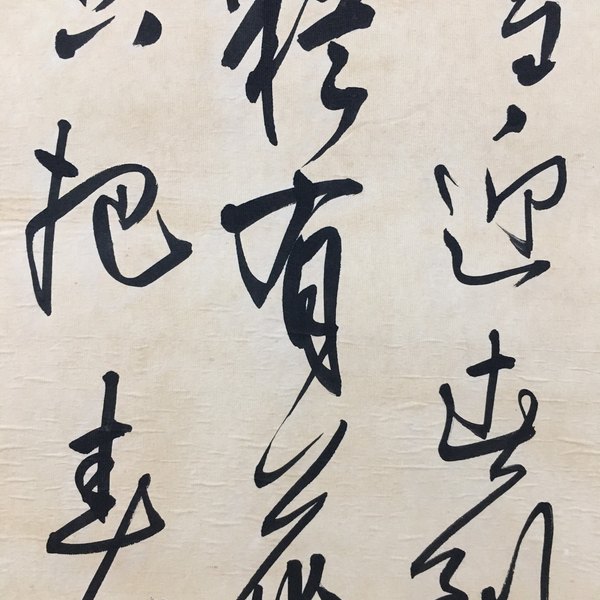 雪迎春到
猶有花
只把春